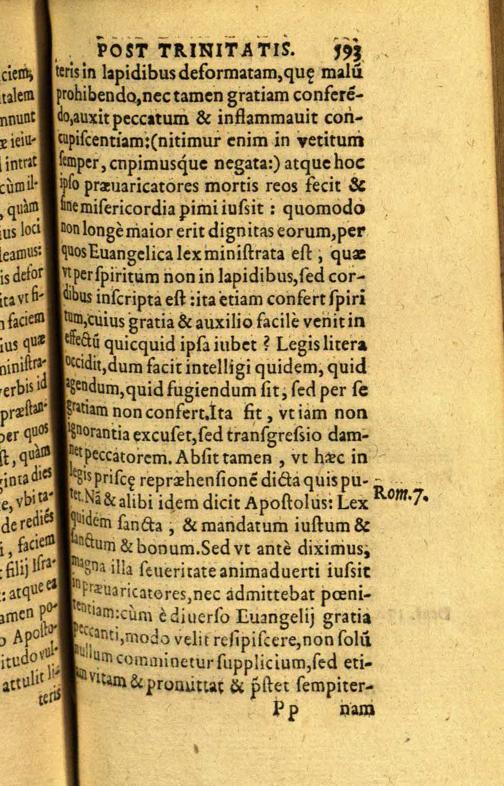 ciem,
talem
nnunt
æ ieiu-
l intrat
cùm il-
, quàm
ius loci
leamus:
is defor
ita vt fi-
n faciem
ius quæ
ministra-
verbis id
præstan-
per quos
st, quàm
ginta dies
e, vbi ta-
de rediés
i, faciem
t filij Isra-
: atque ea
amen po-
o Aposto-
itudo vul-
attulit li-
teris
POST TRINITATIS. 593
teris in lapidibus deformatam, quę malũ
prohibendo, nec tamen gratiam conferẽ-
do, auxit peccatum & inflammauit con-
cupiscentiam: (nitimur enim in vetitum
semper, cnpimusq́ue negata:) atque hoc
ipso præuaricatores mortis reos fecit &
sine misericordia pimi iussit : quomodo
non longè maior erit dignitas eorum, per
quos Euangelica lex ministrata est ; quæ
vt per spiritum non in lapidibus, sed cor-
dibus inscripta est : ita etiam confert spiri
tum, cuius gratia & auxilio facilè venit in
effectũ quicquid ipsa iubet ? Legis litera
occidit, dum facit intelligi quidem, quid
agendum, quid fugiendum sit, sed per se
gratiam non confert. Ita fit , vt iam non
ignorantia excuset, sed transgressio dam-
net peccatorem. Absit tamen , vt hæc in
legis priscę repræhensionẽ dicta quis pu-
tet. Nã & alibi idem dicit Apostolus: Lex
quidem sancta ; & mandatum iustum &
sanctum & bonum. Sed vt antè diximus,
magna illa seueritate animaduerti iussit
in præuaricatores, nec admittebat pœni-
tentiam: cùm è diuerso Euangelij gratia
peccanti, modo velit resipiscere, non solũ
nullum comminetur supplicium, sed eti-
am vitam & promittat & p̃stet sempiter-
Pp nam
Rom. 7.